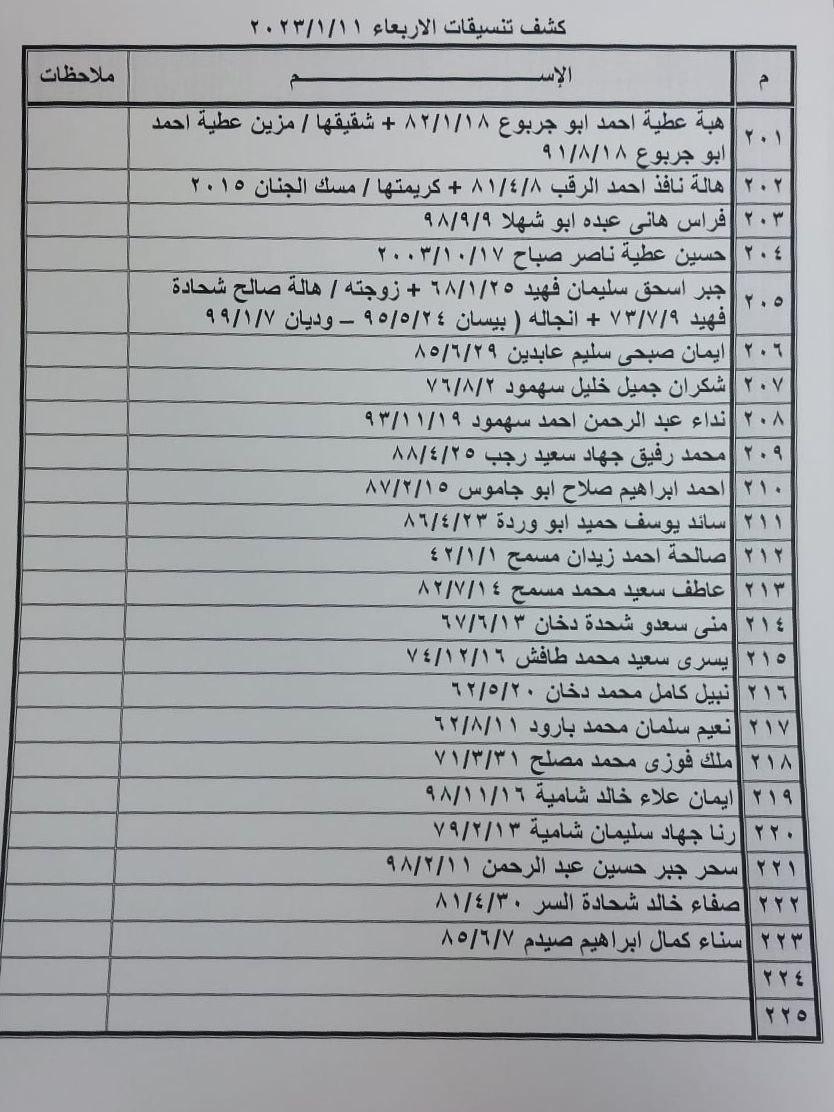 كشف تنسيقات الاربعاء ٢٠٢٣/١/١١
م الإســـــــم ملاحظات
٢٠١ هبة عطية احمد ابو جربوع ٨٢/١/١٨ + شقيقها / مزين عطية احمد
ابو جربوع ٩١/٨/١٨
٢٠٢ هالة نافذ احمد الرقب ٨١/٤/٨ + كريمتها / مسك الجنان ٢٠١٥
٢٠٣ فراس هانى عبده ابو شهلا ٩٨/٩/٩
٢٠٤ حسين عطية ناصر صباح ٢٠٠٣/١٠/١٧
٢٠٥ جبر اسحق سليمان فهيد ٦٨/١/٢٥ + زوجته / هالة صالح شحادة
فهيد ٧٣/٧/٩ + انجاله ( بيسان ٩٥/٥/٢٤ – وديان ٩٩/١/٧
٢٠٦ ايمان صبحى سليم عابدين ٨٥/٦/٢٩
٢٠٧ شكران جميل خليل سهمود ٧٦/٨/٢
٢٠٨ نداء عبد الرحمن احمد سهمود ٩٣/١١/١٩
٢٠٩ محمد رفيق جهاد سعيد رجب ٨٨/٤/٢٥
٢١٠ احمد ابراهيم صلاح ابو جاموس ٨٧/٢/١٥
٢١١ سائد يوسف حميد ابو وردة ٨٦/٤/٢٣
٢١٢ صالحة احمد زيدان مسمح ٤٢/١/١
٢١٣ عاطف سعيد محمد مسمح ٨٢/٧/١٤
٢١٤ منى سعدو شحدة دخان ٦٧/٦/١٣
٢١٥ يسرى سعيد محمد طافش ٧٤/١٢/١٦
٢١٦ نبيل كامل محمد دخان ٦٢/٥/٢٠
٢١٧ نعيم سلمان محمد بارود ٦٢/٨/١١
٢١٨ ملك فوزى محمد مصلح ٧١/٣/٣١
٢١٩ ايمان علاء خالد شامية ٩٨/١١/١٦
٢٢٠ رنا جهاد سليمان شامية ٧٩/٢/١٣
٢٢١ سحر جبر حسين عبد الرحمن ٩٨/٢/١١
٢٢٢ صفاء خالد شحادة السر ٨١/٤/٣٠
٢٢٣ سناء كمال ابراهيم صيدم ٨٥/٦/٧
٢٢٤
٢٢٥